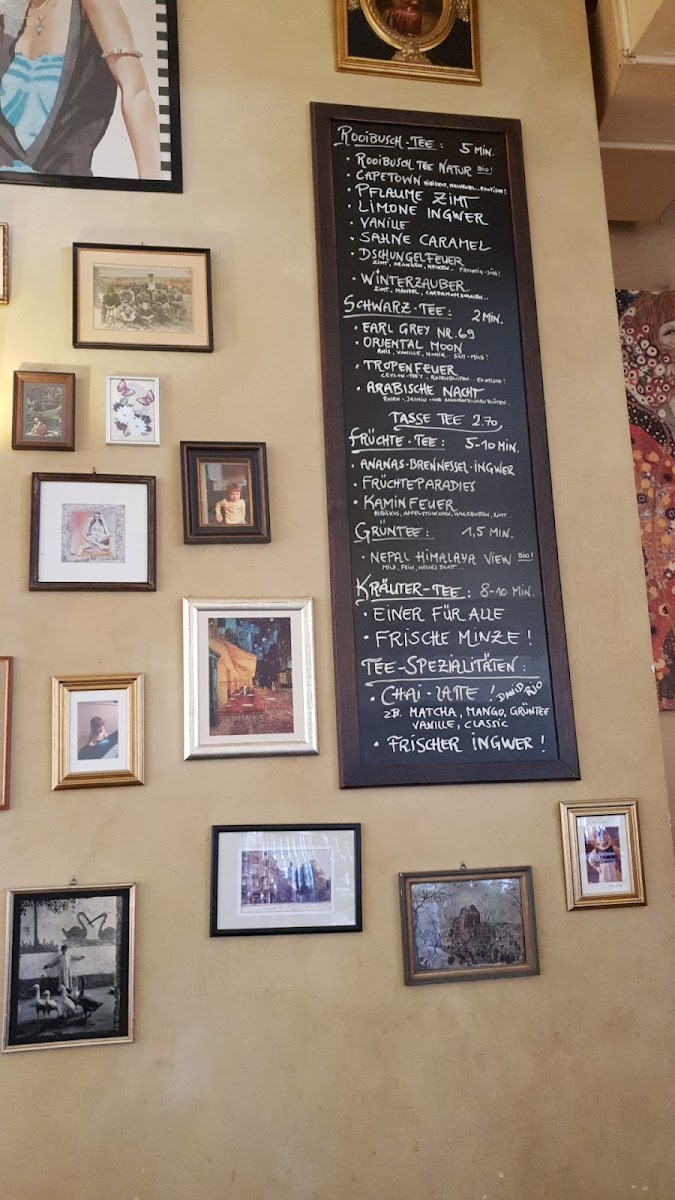 ROOIBUSCH-TEE: 5 MIN.
• ROOIBUSCH TEE NATUR BIO!
• CAPETOWN
• PFLAUME ZIMT
• LIMONE INGWER
• VANILLE
• SAHNE CARAMEL
• DSCHUNGELFEUER
ZIMT, ORANGEN,
• WINTERZAUBER
ZIMT, MANDEL, CARDAMOM
SCHWARZ-TEE: 2 MIN.
• EARL GREY NR. 69
• ORIENTAL MOON
ANIS, VANILLE, HONIG.. SÜß-MILD!
• TROPENFEUER
ROSENBLÜTEN.. EXOTISCH!
• ARABISCHE NACHT
ROSEN-, JASMIN- UND SONNENBLUMENBLÜTEN..
TASSE TEE 2.70
FRÜCHTE-TEE: 5-10 MIN.
• ANANAS-BRENNESSEL-INGWER
• FRÜCHTEPARADIES
• KAMINFEUER
HIBISKUS, APFELSTÜCKCHEN, HAGEBUTTEN, ZIMT..
GRÜNTEE: 1,5 MIN.
• NEPAL HIMALAYA VIEW BIO!
MILD, FEIN, HELLES BLATT...
KRÄUTER-TEE: 8-10 MIN.
• EINER FÜR ALLE
• FRISCHE MINZE!
TEE-SPEZIALITÄTEN:
• CHAI-LATTE! DAVID RIO
ZB. MATCHA, MANGO, GRÜNTEE
VANILLE, CLASSIC
• FRISCHER INGWER!